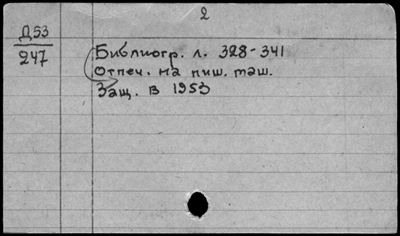 2
Д53
247
Библиогр. л. 328-341
Отпеч. на пиш. маш.
Защ. в 1953